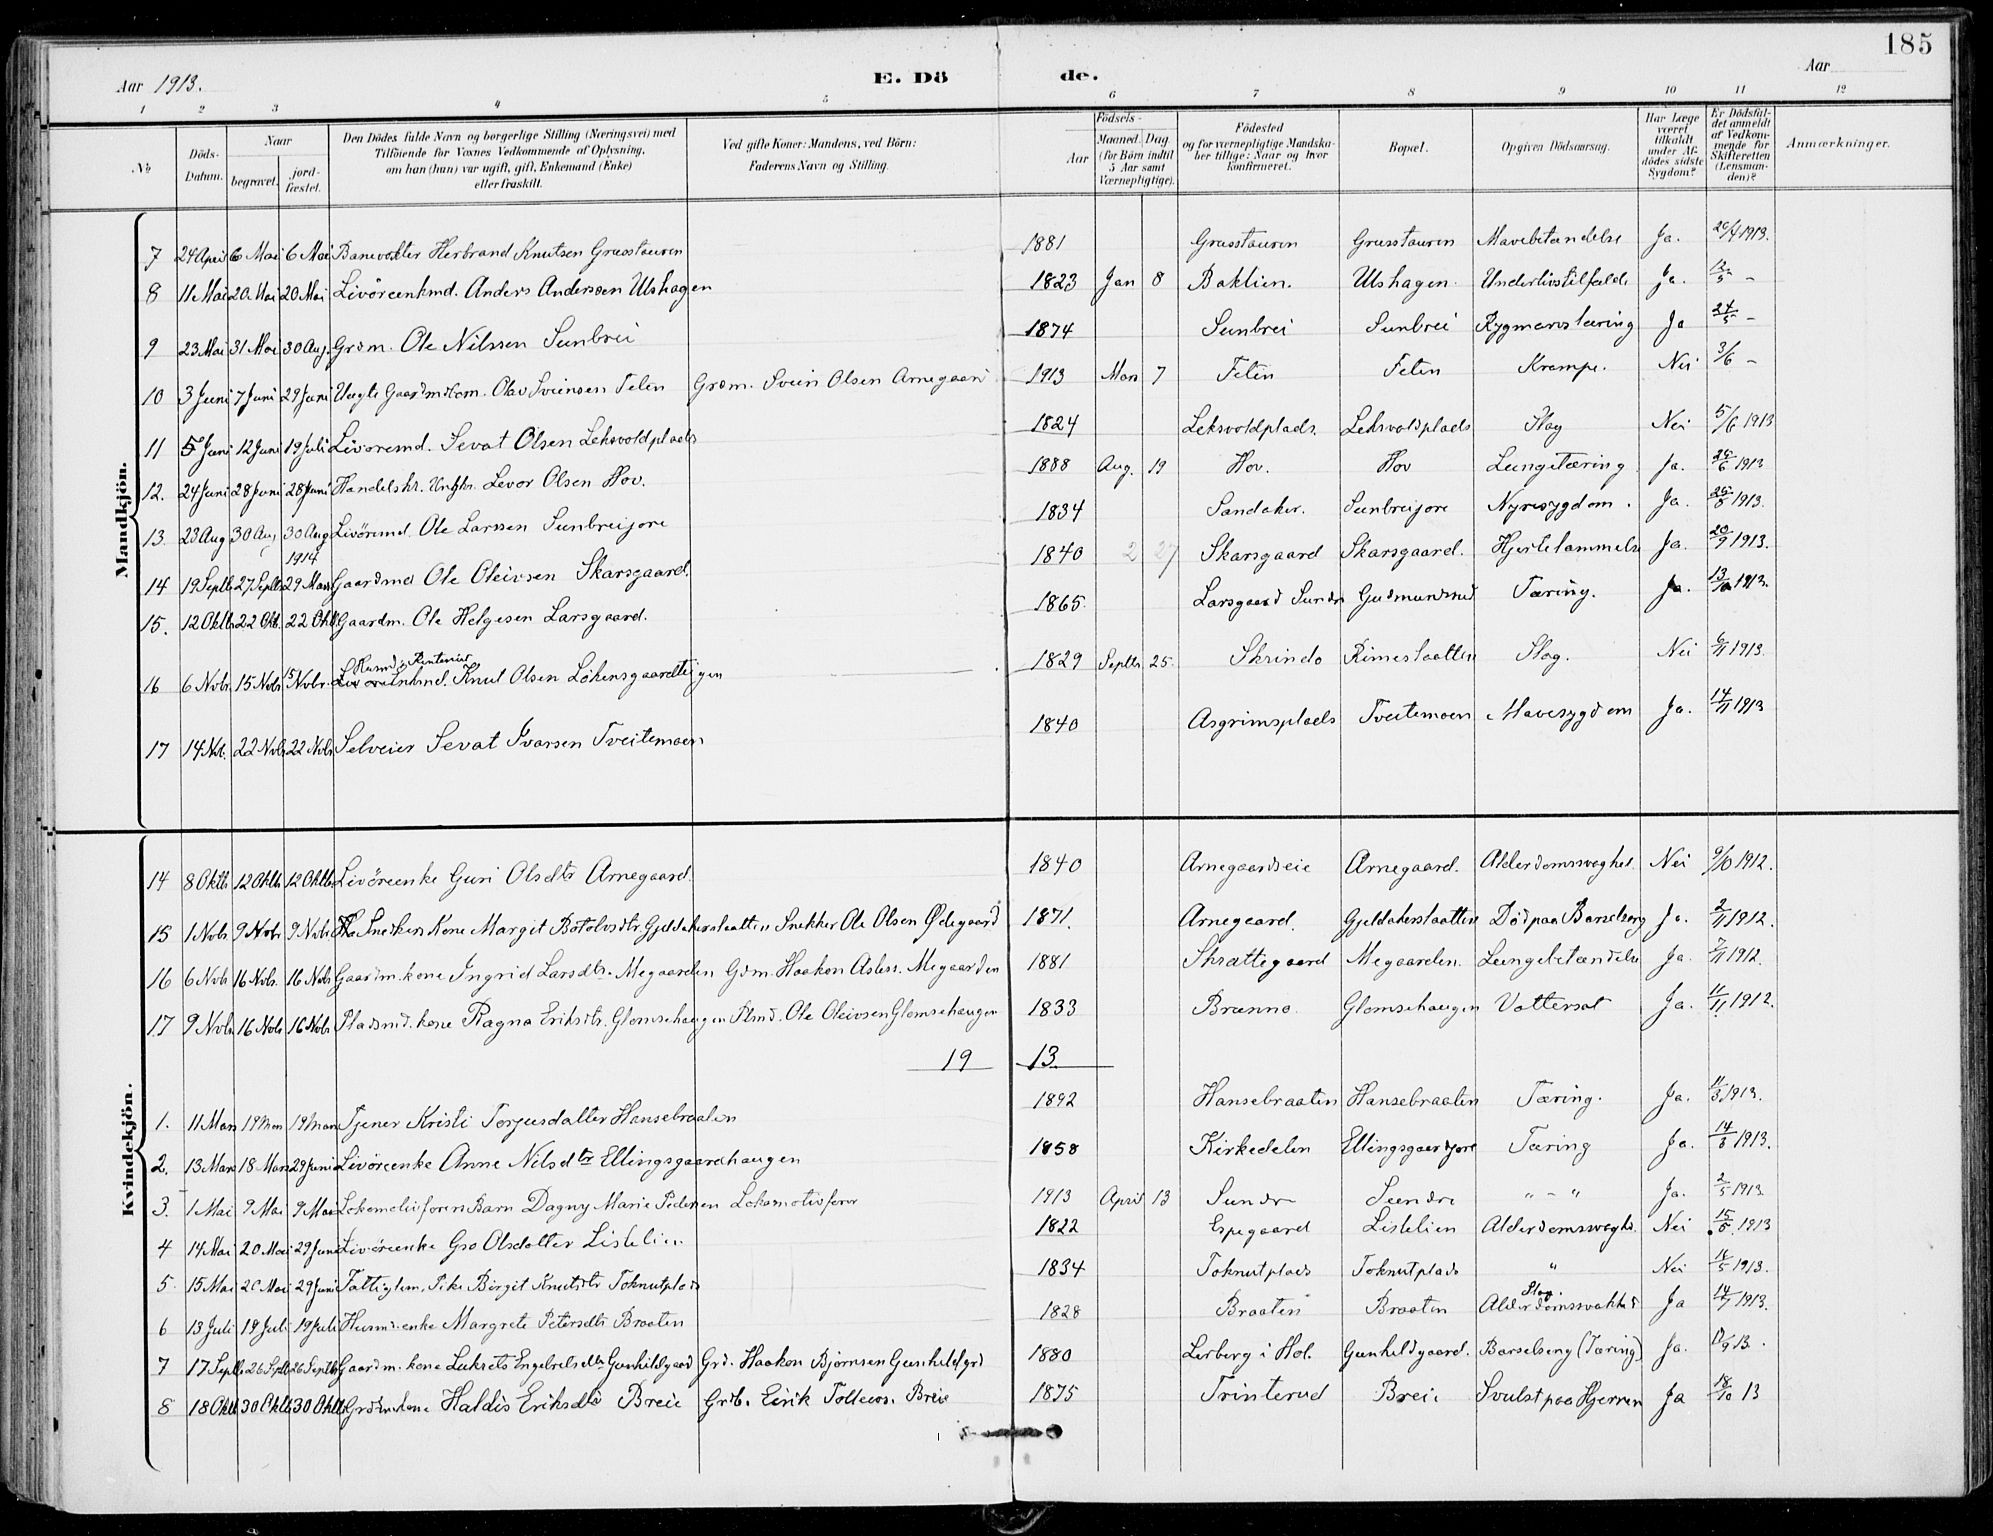 185
Aar 1913.
E. Dö
de.
Aar
1 2 3 4 5 6 7 8 9 10 11 12
No
Döds-Datum.
Naar
begravet.
jord-fæstet.
Den Dödes fulde Navn og borgerlige Stilling (Næringsvei) med Tilföiende for Voxnes Vedkommende af Oplysning, om han (hun) var ugift, gift, Enkemand (Enke) eller fraskilt.
Ved gifte Koner: Mandens, ved Börn: Faderens Navn og Stilling.
Födsels-
Aar
Maaned. Dag.
(for Börn indtil 5 Aar samt Værnepligtige).
Födested og for værnepligtige Mandskaber tillige: Naar og hvor konfirmeret.
Bopæl.
Opgiven Dödsaarsag.
Har Læge været tilkaldt under Afdödes sidste Sygdom?
Er Dödsfaldet anmeldt af Vedkommende for Skifteretten (Lensmanden)?
Anmærkninger.
Mandkjön.
7 24 April 6 Mai 6 Mai Banevokter Herbrand Knutsen Grusstauren 1881 Grusstauren Grusstauren Mavebetændelse Ja. 26/4 1913.
8 11 Mai 20 Mai 20 Mai Livöreenkmd. Anders Anderssen Ulshagen 1823 Jan 8 Baklien. Ulshagen. Underlivstilfælde Ja. 12/5 -
9 23 Mai 31 Mai 30 Aug. Grdm. Ole Nilssen Sunbrei 1874 Sunbrei Sunbrei Rygmarvstæring Ja 24/5 -
10 3 Juni 7 Juni 29 Juni Olav Sveinsen Felen Grdm. Svein Olsen Arnegaard 1913 Mars 7 Felen Felen Krampe. Nei 3/6 -
11 5 Juni 12 Juni 19 Juli Livöremd. Sevat Olsen Leksvoldplads 1824 Leksvoldplads. Leksvoldplads Slag Nei 5/6 1913
12. 24 Juni 28 Juni 28 Juni Handelskr. Ungkr. Levor Olsen Hov. 1888 Aug. 19 Hov. Hov Lungetæring Ja. 26/6 1913
13. 23 Aug 30 Aug 30 Aug Livöremd. Ole Larssen Sunbreijore 1834 Sandaker. Sunbreijore Nyresygdom. Ja. 25/8 1913.
1914
14 19 Septb 27 Septb 29 Mars Gaardmd Ole Oleivsen Skarsgaard. 1840 2 27 Skarsgaard Skarsgaard. Hjertelammelse Ja. 20/9 1913.
15. 12 Oktb 22 Okt. 22 Okt Gaardm. Ole Helgesen Larsgaard. 1865. Larsgaard Sundre Gudmundsrud Tæring. Ja. 13/10 1913.
16 6 Novb. 15 Novb 15 Novbr. Knut Olsen Lökensgaardteigen 1829 Septb 25. Skrindo Rimeslaatten Slag. Nei 6/11 1913.
17 14 Nov. 22 Novb 22 Novb Selveier Sevat Ivarsen Tveitemoen 1840 Asgrimsplads Tveitemoen Mavesygdom Ja. 14/11 1913
Kvindekjön.
14 8 Oktb 12 Oktb 12 Oktb Livöreenke Guri Olsdtr Arnegaard. 1840 Arnegaardseie Arnegaard. Alderdomssvaghet. Nei 9/10 1912.
15 1 Novb 9 Novb 9 Novb Snedkers Kone Margit Botolvsdtr. Gjeldakerslaatten Snekker Ole Olsen Ødegaard 1871. Arnegaard. Gjeldakerslaatten Död paa Barselseng Ja. 2/11 1912.
16 6 Novb 16 Novb. 16 Novb Gaardm. kone Ingrid Larsdtr. Megaarden Gdm. Haakon Asless. Megaarden 1881 Skrattegaard Megaarden. Lungebetændelse Ja. 7/11 1912.
17 9 Novb 16 Novb 16 Novb. Pladsmd. kone Ragna Eriksdtr. Glomsehaugen Plmd. Ole Oleivsen Glomsehaugen 1833 Brænno. Glomsehaugen Vattersot Ja. 11/11 1912.
19 13.
1. 11 Mars 19 Mars 19 Mars Tjener Kristi Torjusdatter Hansebraaten 1892 Hansebraaten Hansebraaten Tæring. Ja. 11/3 1913.
2. 13 Mars 18 Mars 29 Juni Livöreenke Anne Nilsdtr Ellingsgaardhaugen 1858 Kirkedelen Ellingsgaardjore Tæring Ja. 14/3 1913.
3. 1 Mai 9 Mai 9 Mai Lokomotivförers Barn Dagny Marie Pedersen Lokomotivförer 1913 April 13 Sundre Sundre " - " Ja. 2/5 1913
4 14 Mai 20 Mai 29 Juni Livöreenke Gro Olsdatter Lislelien 1822 Espegaard Lislelien Alderdomssvagh. Nei 15/5 1913
5. 15 Mai 20 Mai 29 Juni Fattiglem, Pike Birgit Knutsdtr Toknutplads 1834 Toknutplads Toknutplads " Nei 16/5 1913.
6 13 Juli 19 Juli 19 Juli Husmdsenke Margrete Petersdtr Braaten 1828 Braaten Braaten Slag. Alderdomssvakhed Ja 14/7 1913.
7 17 Septb 26 Septb 26 Septb Gaardm. kone Lukrets Engebretsdtr Gunhildgaard Grd. Haakon Bjørnsen Gunhildgrd 1880 Lerberg i Hol. Gunhildgaard. Barselseng (Tæring) Ja. 17/9 13.
8 18 Oktb 30 Oktb 30 Oktb Grdm. kone Haldis Eriksdtr Breie Grb. Eirik Tolleivs. Breie 1875 Trinterud Breie Svulst paa Hjernen Ja 18/10 13